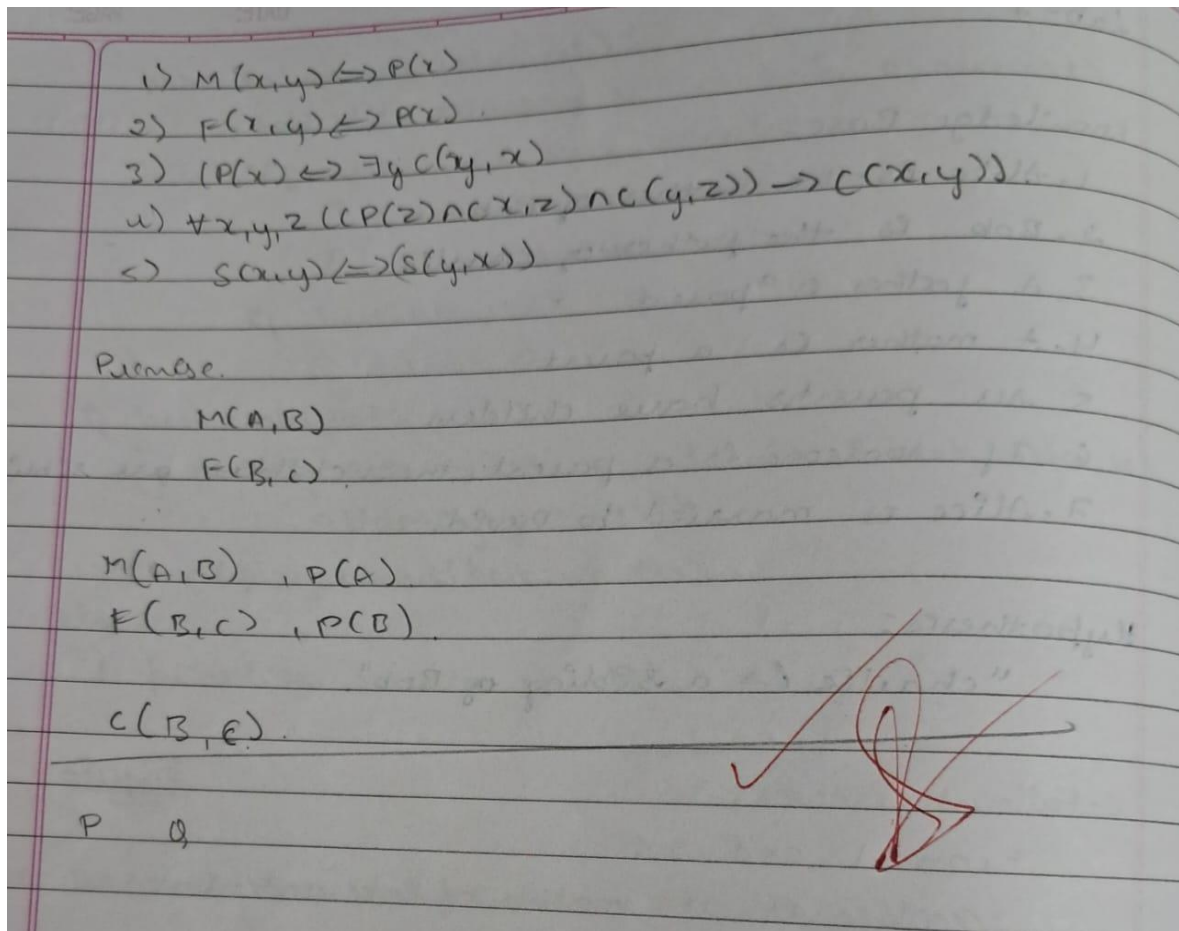 1) M(x,y) <=> P(x)
2) F(x,y) <=> P(x).
3) (P(x) <=> ∃y C(y,x)
4) ∀x,y,z ((P(z) ∩ C x,z) ∩ C(y,z)) -> C(x,y))
5) S(x,y) <=> (S(y,x))
Premise.
M(A,B)
F(B,C).
M(A,B) , P(A)
F(B,C) , P(B).
C(B,C).
P Q